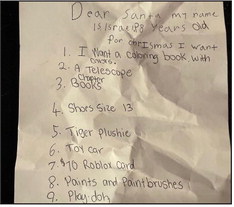 Dear Santa my name
is Israel 8 years old
for chrismas I want
1. I Want a coloring book with
crayons.
2. A Telescope
chapter
3. Books
4. Shors Size 13
5. Tiger Plushie
6. Toy car
7. $10 Roblox Card
8. Paints and Paintbrushes
9. Play-doh